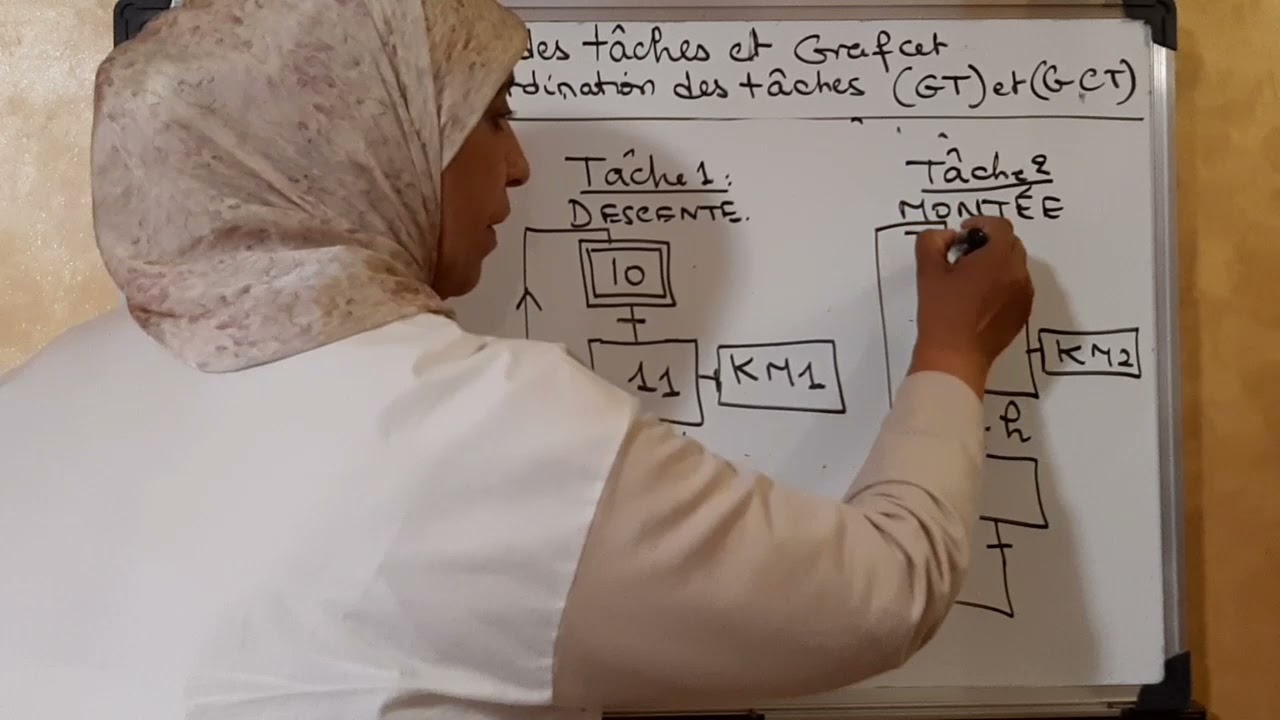 des tâches et Grafcet
rdination des tâches (GT) et (GCT)
Tâche 1:
DESCENTE.
10
11
KM1
Tâche 2
MONTÉE
KM2
.h